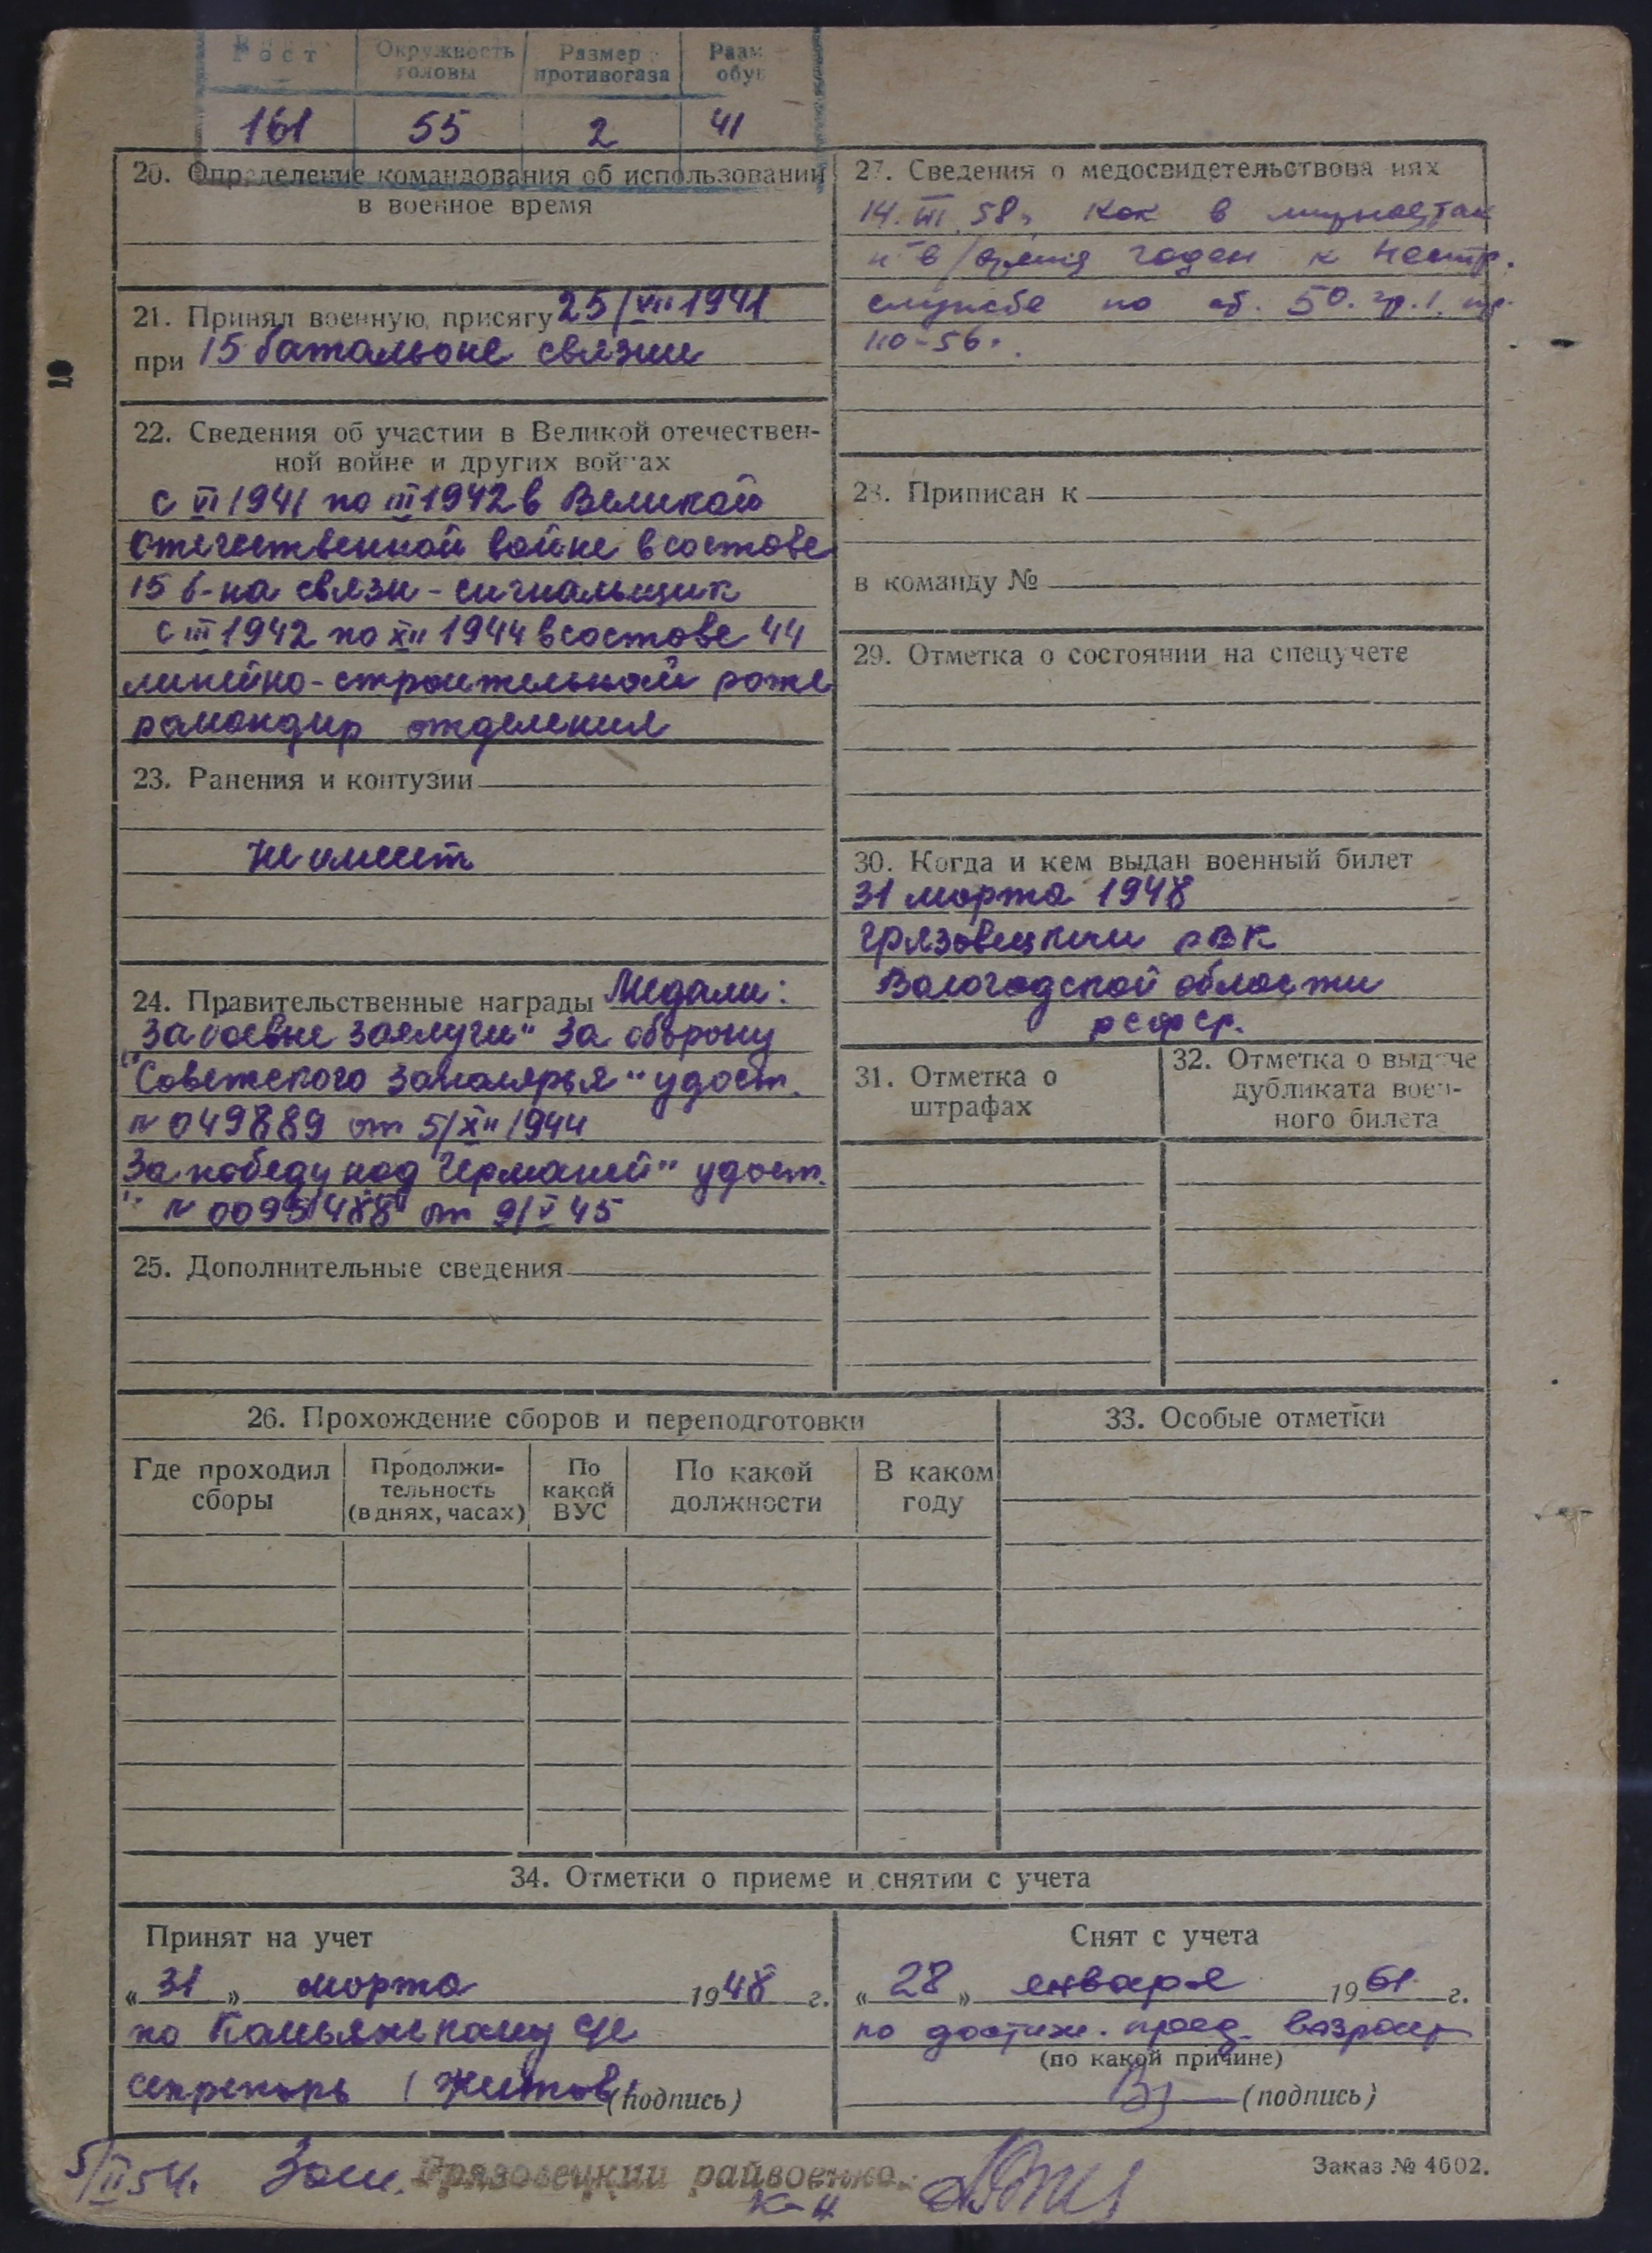 Рост Окружность головы Размер противогаза Разм обув
161 55 2 41
20. Определение командования об использовании
в военное время
21. Принял военную присягу 25/VII 1941
при 15 батальоне связи
22. Сведения об участии в Великой отечествен-
ной войне и других войнах
с VI 1941 по III 1942 в Великой
отечественной войне в составе
15 б-на связи - сигнальщик
с III 1942 по XII 1944 в составе 44
линейно-строительной роте
командир отделения
23. Ранения и контузии
Не имеет
24. Правительственные награды Медали:
"За боевые заслуги" За оборону
"Советского заполярья" удост.
№ 049889 от 5/XII 1944
За победу над Германией" удост.
" № 0095488 от 9/V 45
25. Дополнительные сведения
27. Сведения о медосвидетельствованиях
14. III. 58г. Как в мирное, так
и в/время годен к нестр.
службе по ст. 50. гр. I. пр.
110-56г.
28. Приписан к
в команду №
29. Отметка о состоянии на спецучете
30. Когда и кем выдан военный билет
31 марта 1948
Грязовецким РВК
Вологодской области
РСФСР.
31. Отметка о
штрафах
32. Отметка о выдаче
дубликата воен-
ного билета
26. Прохождение сборов и переподготовки
Где проходил сборы Продолжи-тельность (в днях, часах) По какой ВУС По какой должности В каком году
33. Особые отметки
34. Отметки о приеме и снятии с учета
Принят на учет
"31" марта 1948 г.
по
секретарь (подпись)
Снят с учета
"28" января 1961 г.
по достиж. пред. возраст
(по какой причине)
(подпись)
5/II 54г. Зам. Грязовецкий райвоенко
к-н
Заказ № 4602.